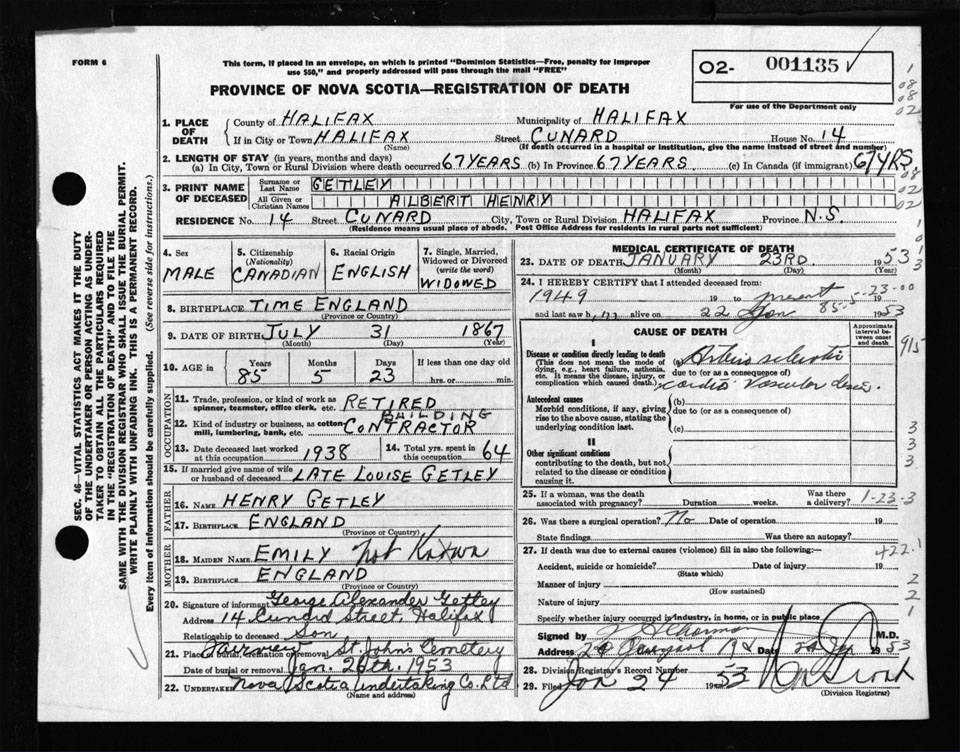 FORM 6
This form, if placed in an envelope, on which is printed "Dominion Statistics—Free, penalty for improper
use $50," and properly addressed will pass through the mail "FREE"
PROVINCE OF NOVA SCOTIA—REGISTRATION OF DEATH
02- 001135
For use of the Department only
1. PLACE OF DEATH
County of HALIFAX Municipality of HALIFAX
If in City or Town HALIFAX Street CUNARD House No. 14
(Name) (If death occurred in a hospital or institution, give the name instead of street and number)
2. LENGTH OF STAY (in years, months and days)
(a) In City, Town or Rural Division where death occurred 67 YEARS (b) In Province 67 YEARS (c) In Canada (if immigrant) 67 YRS.
3. PRINT NAME OF DECEASED
Surname or Last Name GETLEY
All Given or Christian Names ALBERT HENRY
RESIDENCE No. 14 Street CUNARD City, Town or Rural Division HALIFAX Province N.S.
(Residence means usual place of abode. Post Office Address for residents in rural parts not sufficient)
4. Sex
MALE
5. Citizenship
(Nationality)
CANADIAN
6. Racial Origin
ENGLISH
7. Single, Married,
Widowed or Divorced
(write the word)
WIDOWED
8. BIRTHPLACE TIME ENGLAND
(Province or Country)
9. DATE OF BIRTH JULY 31 1867
(Month) (Day) (Year)
10. AGE in
Years Months Days If less than one day
85 5 23 hrs. or min.
OCCUPATION
11. Trade, profession, or kind of work as
spinner, teamster, office clerk, etc. RETIRED
12. Kind of industry or business, as cotton
mill, lumbering, bank, etc. BUILDING CONTRACTOR
13. Date deceased last worked
at this occupation 1938
14. Total yrs. spent in
this occupation 64
15. If married give name of wife
or husband of deceased LATE LOUISE GETLEY
FATHER
16. Name HENRY GETLEY
17. Birthplace ENGLAND
(Province or Country)
MOTHER
18. Maiden Name EMILY not Known
19. Birthplace ENGLAND
(Province or Country)
20. Signature of informant George Alexander Getley
Address 14 Cunard Street, Halifax
Relationship to deceased Son
21. Place of burial, cremation or removal Fairview St. John's Cemetery
Date of burial or removal Jan. 26th. 1953
22. Undertaker Nova Scotia Undertaking Co. Ltd
(Name and address)
MEDICAL CERTIFICATE OF DEATH
23. DATE OF DEATH JANUARY 23RD. 1953
(Month) (Day) (Year)
24. I HEREBY CERTIFY that I attended deceased from:
1949 19 to present 19
and last saw h im alive on 22 Jan 1953
CAUSE OF DEATH
Approximate interval between onset and death
I
Disease or condition directly leading to death
(This does not mean the mode of
dying, e.g., heart failure, asthenia,
etc. It means the disease, injury, or
complication which caused death.)
(a)
due to (or as a consequence of)
cardio vascular
Antecedent causes
Morbid conditions, if any, giving
rise to the above cause, stating the
underlying condition last.
(b)
due to (or as a consequence of)
(c)
II
Other significant conditions
contributing to the death, but not
related to the disease or condition
causing it.
25. If a woman, was the death
associated with pregnancy? Duration weeks. Was there
a delivery? 1-23-3
26. Was there a surgical operation? No Date of operation 19
State findings Was there an autopsy?
27. If death was due to external causes (violence) fill in also the following:
422.1
Accident, suicide or homicide? Date of injury 19
(State which)
Manner of injury
(How sustained)
Nature of injury
Specify whether injury occurred in industry, in home, or in public place
Signed by M.D.
Address Date 1953
28. Division Registrar's Record Number
29. Filed Jan 24 1953
(Division Registrar)
SEC. 46—VITAL STATISTICS ACT MAKES IT THE DUTY
OF THE UNDERTAKER OR PERSON ACTING AS UNDER-
TAKER TO OBTAIN ALL THE PARTICULARS REQUIRED
IN THE "REGISTRATION OF DEATH" AND TO FILE THE
SAME WITH THE DIVISION REGISTRAR WHO SHALL ISSUE THE BURIAL PERMIT.
WRITE PLAINLY WITH UNFADING INK. THIS IS A PERMANENT RECORD.
Every item of information should be carefully supplied. (See reverse side for instructions.)